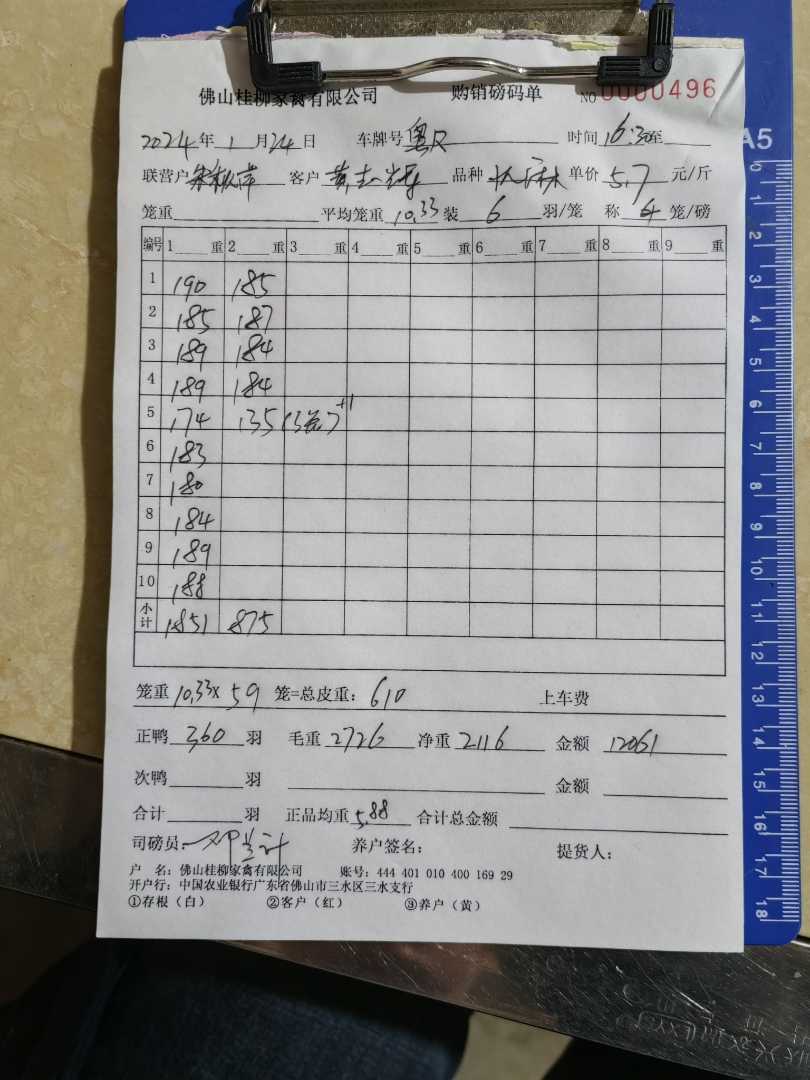 佛山桂柳家禽有限公司 购销磅码单 NO 0000496
2024年1月24日 车牌号 粤R 时间16:30至
联营户 客户 黄志辉 品种 单价5.7元/斤
笼重 平均笼重10.33装6羽/笼 称6笼/磅
编号 1 重 2 重 3 重 4 重 5 重 6 重 7 重 8 重 9 重
1 190 185
2 185 187
3 189 184
4 189 184
5 174 135 (3笼) +1
6 183
7 180
8 184
9 189
10 188
小计 1851 875
笼重10.33×59笼=总皮重:610 上车费
正鸭360羽 毛重2726 净重2116 金额12061
次鸭 羽 金额
合计 羽 正品均重5.88 合计总金额
司磅员: 养户签名: 提货人:
户 名:佛山桂柳家禽有限公司 账号:444 401 010 400 169 29
开户行:中国农业银行广东省佛山市三水区三水支行
①存根(白) ②客户(红) ③养户(黄)
A5
0 1 2 3 4 5 6 7 8 9 10 11 12 13 14 15 16 17 18